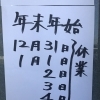 年末年始
12月31日
1月1日
2日
3日
休業